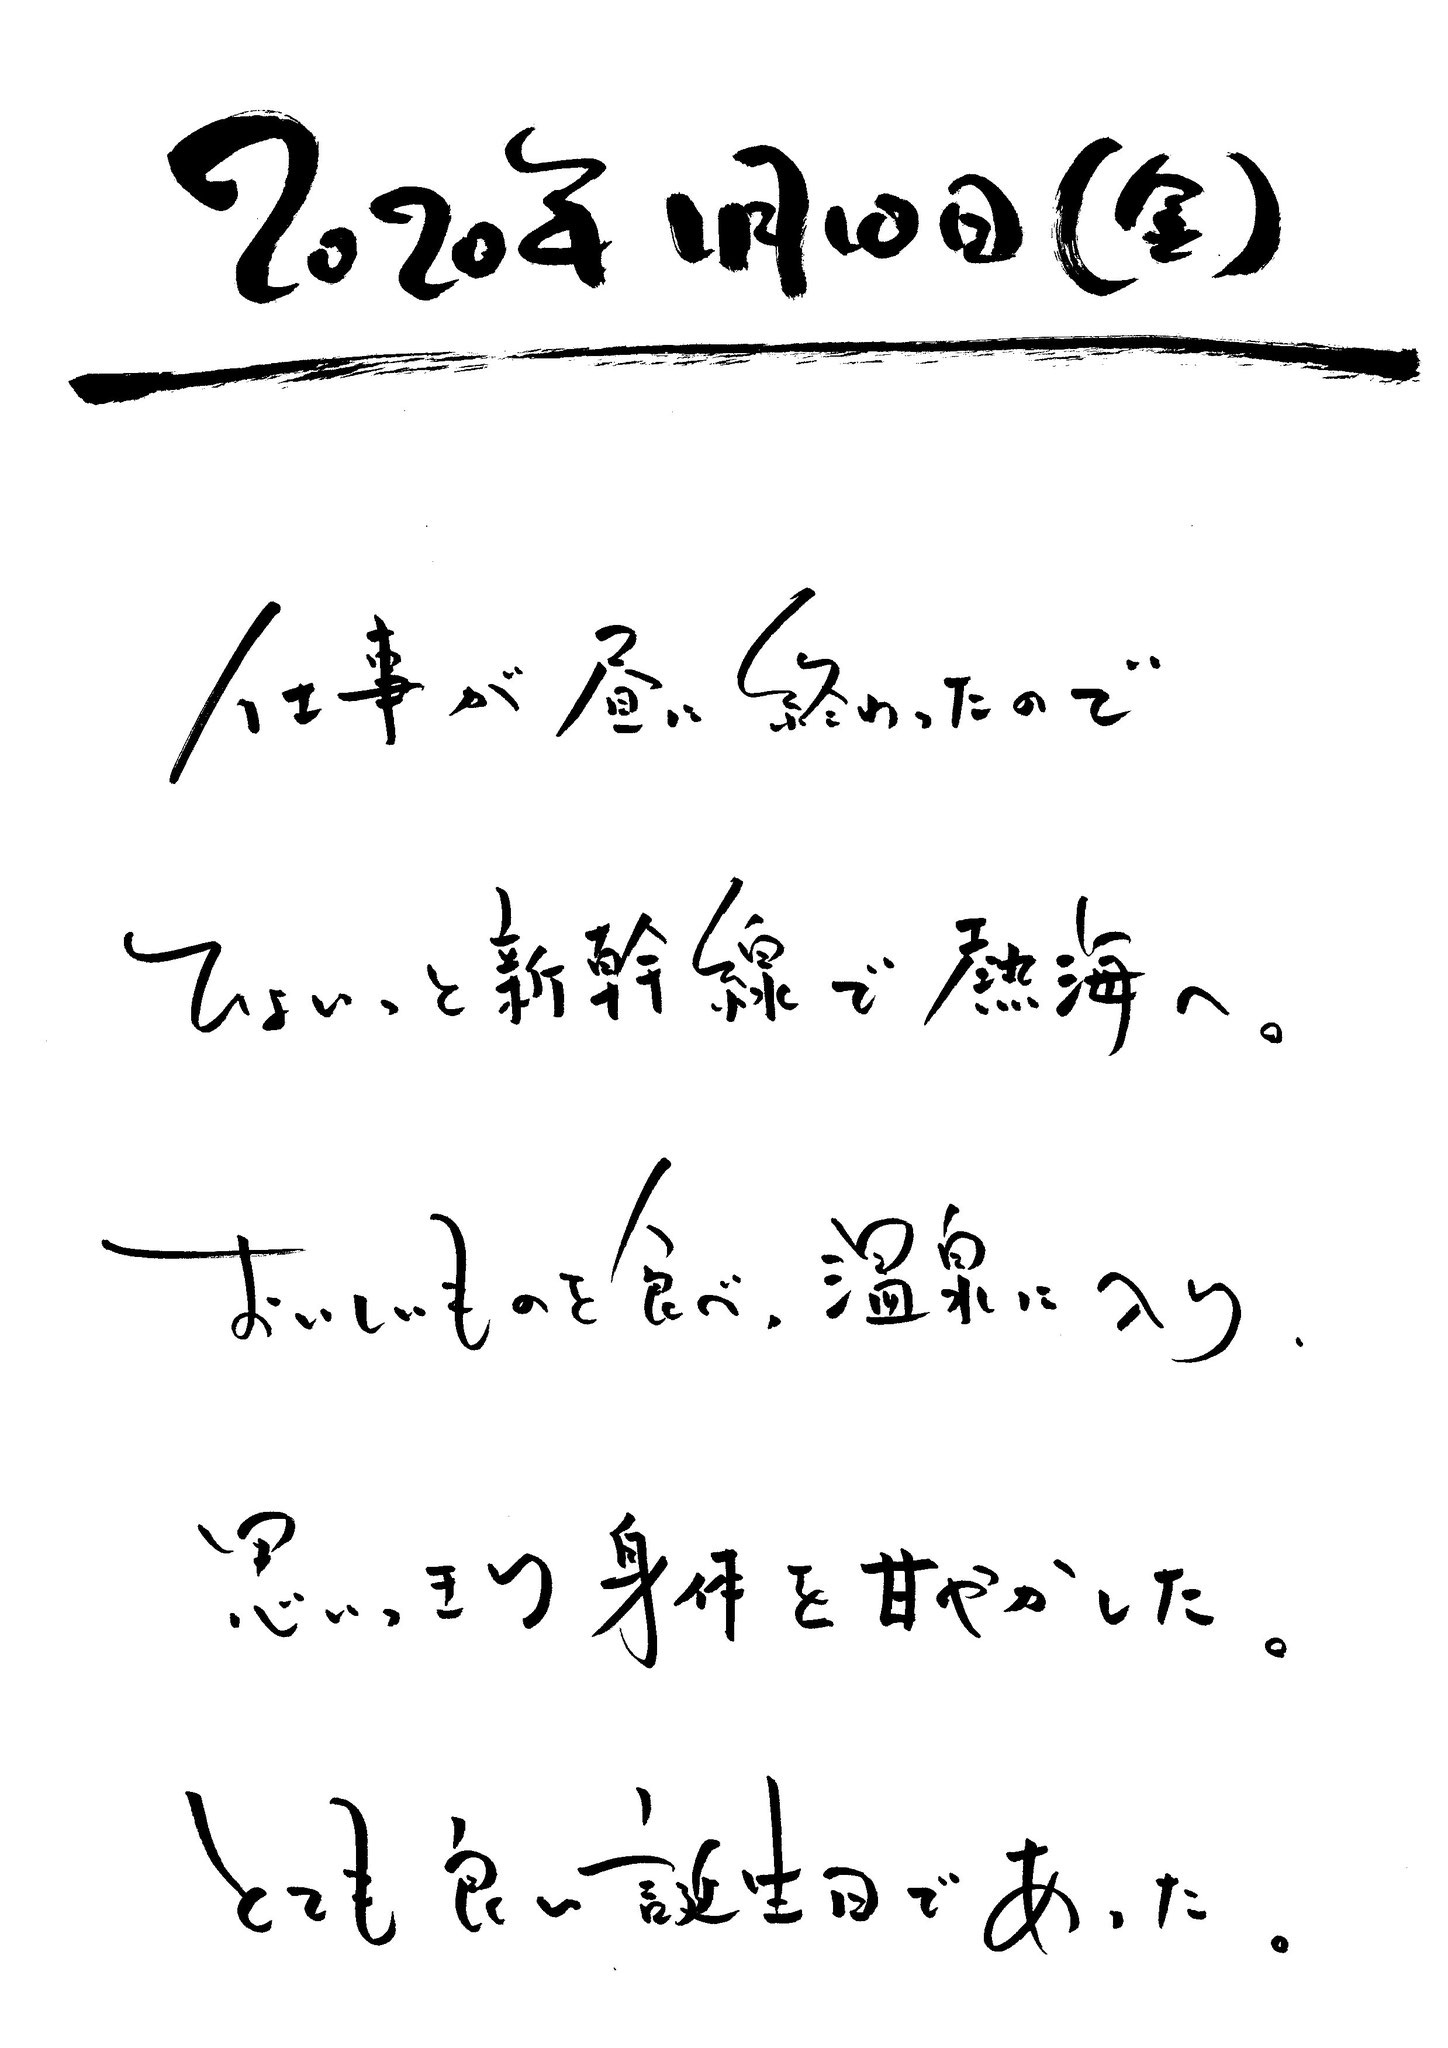 2020年1月10日(金)
仕事が昼に終わったので
ひょいっと新幹線で熱海へ。
おいしいものを食べ、温泉に入り、
思いっきり身体を甘やかした。
とても良い誕生日であった。